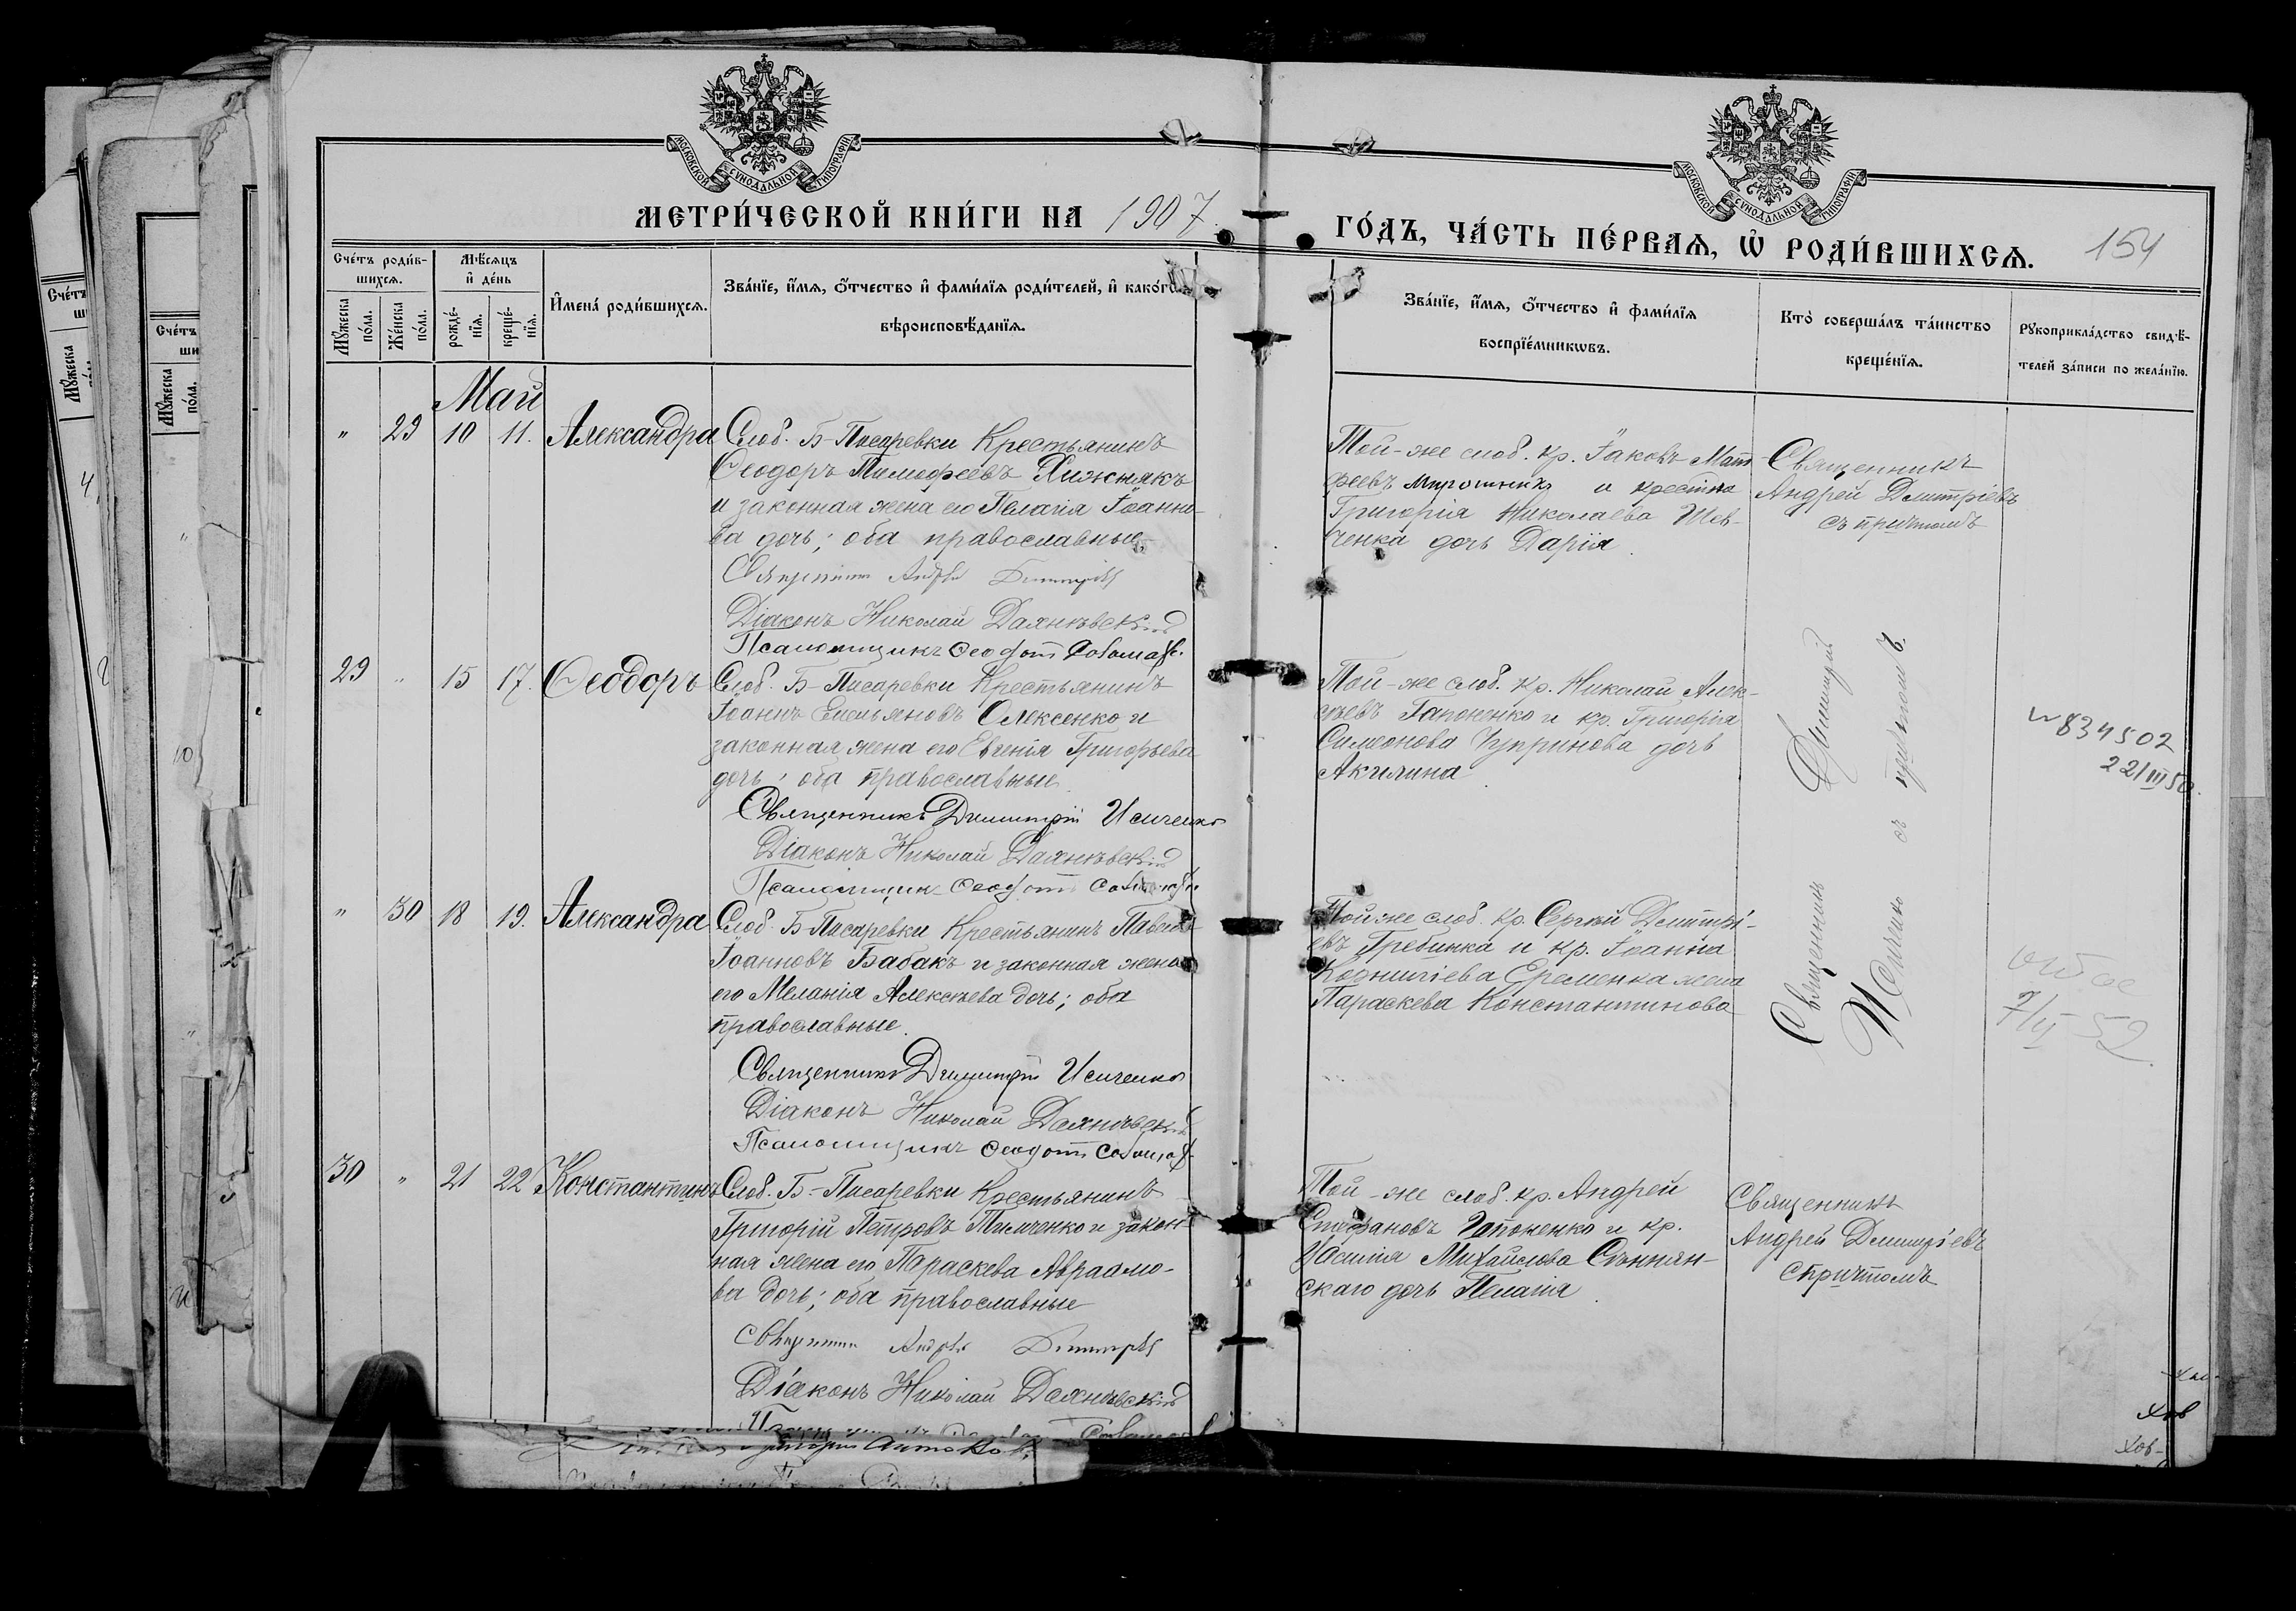 МЕТРИ́ЧЕСКОЙ КНИ́ГИ НА 1907
ГО́ДЪ, ЧА́СТЬ ПЕ́РВАѦ, Ѡ҆ РОДИ́ВШИХСѦ.
154
МОСКОВСКОЙ СѴНОДАЛЬНОЙ ТИПОГРАФІИ
МОСКОВСКОЙ СѴНОДАЛЬНОЙ ТИПОГРАФІИ
Сче́тъ роди́в-
шихсѧ.
Мꙋ́жеска по́ла.
Же́нска по́ла.
Мѣ́сѧцъ
и҆ де́нь
рожде́-нїѧ.
креще́-нїѧ.
И҆мена̀ роди́вшихсѧ.
Зва́нїе, и҆́мѧ, ѻ҆́тчество и҆ фами́лїѧ роди́телей, и҆ како́гѡ
вѣроисповѣ́данїѧ.
Зва́нїе, и҆́мѧ, ѻ҆́тчество и҆ фами́лїѧ
воспрїе́мникѡвъ.
Кто̀ соверша́лъ та́инство
креще́нїѧ.
Рꙋкоприкла́дство свидѣ́-
телей за́писи по жела́нїю.
Май
" 29 10 11. Александра
Слоб. Б-Писаревки Крестьянинъ
Ѳеодоръ Тимофеевъ Хижнякъ
и законная жена его Пелагія Іоанно-
ва дочь; оба православные,
Діаконъ Николай
Псаломщикъ Ѳеодотъ
Той-же слоб. кр. Іаковъ Мат-
феевъ Мирошникъ и крестьна
Григорія Николаева Шев-
ченка дочь Дарія.
Священникъ
Андрей Дмитріевъ
съ причтомъ
29 " 15 17. Ѳеодоръ
Слоб. Б-Писаревки Крестьянинъ
Іоаннъ Емельяновъ Олексенко и
законная жена его Евгенія Григорьева
дочь; оба православные.
Священникъ Димитрій Исиченко
Діаконъ Николай
Псаломщикъ Ѳеодотъ
Той-же слоб. кр. Николай Алек-
сѣевъ Гапоненко и кр. Григорія
Симеонова Купринова дочь
Акилина.
Священникъ Димитрій
Исиченко съ причтомъ.
834502
22/III 50.
" 30 18 19. Александра
Слоб. Б-Писаревки Крестьянинъ Павелъ
Іоанновъ Бабакъ и законная жена
его Меланія Алексѣева дочь; оба
православные.
Священникъ Димитрій Исиченко
Діаконъ Николай
Псаломщикъ Ѳеодотъ
Той же слоб. Кр. Сергѣй Дмитрі-
евъ Гребинка и кр. Іоанна
Еременка жена
Параскева Константинова
52
30 " 21 22 Константинъ
Слоб. Б-Писаревки Крестьянинъ
Григорій Петровъ Тимченко и закон-
ная жена его Параскева Авраамо-
ва дочь; оба православные
Діаконъ Николай
Той-же слоб. кр. Андрей
Стефановъ Гапоненко и кр.
Василія Михайлова Сѣннян-
скаго дочь Пелагія.
Священникъ
Андрей Дмитріевъ
съ причтомъ